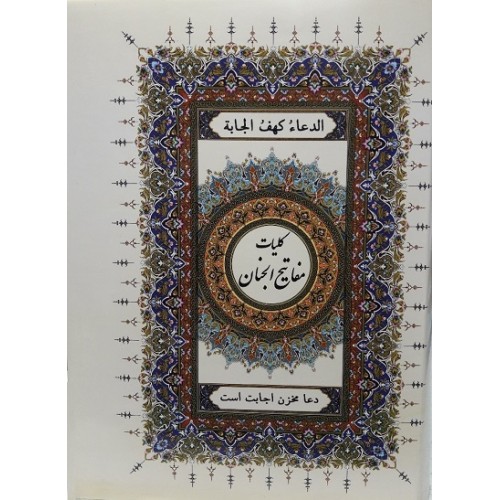 الدعاءُ كهفُ الجابة
کلیات
مفاتیح الجنان
دعا مخزن اجابت است